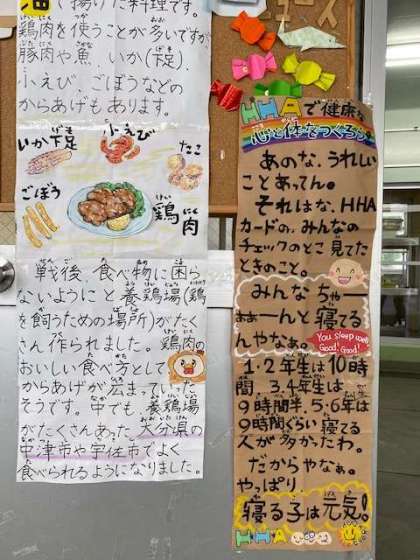 油で揚げた料理です。
鶏肉を使うことが多いですが、
豚肉や魚、いか(下足)、
小えび、ごぼうなどの
からあげもあります。
いか下足
小えび
たこ
ごぼう
鶏肉
戦後、食べ物に困ら
ないようにと養鶏場(鶏
を飼うための場所)がたく
さん作られました。鶏肉の
おいしい食べ方として
からあげが広まっていった
そうです。中でも、養鶏場
がたくさんあった大分県の
中津市や宇佐市でよく
食べられるようになりました。
ニュース
HHAで健康な
心と体をつくろう
あのな、うれしい
ことあってん。
それはな、HHA
カードの、みんなの
チェックのとこ見てた
ときのこと。
みんなちゃー
ぁぁーんと寝てる
んやなぁ。
You sleep well
Good! Good!
1・2年生は10時
間、3.4年生は
9時間半、5・6年は
9時間ぐらい寝てる
人が多かったわ。
だからやなぁ。
やっぱり
寝る子は元気!
HHA